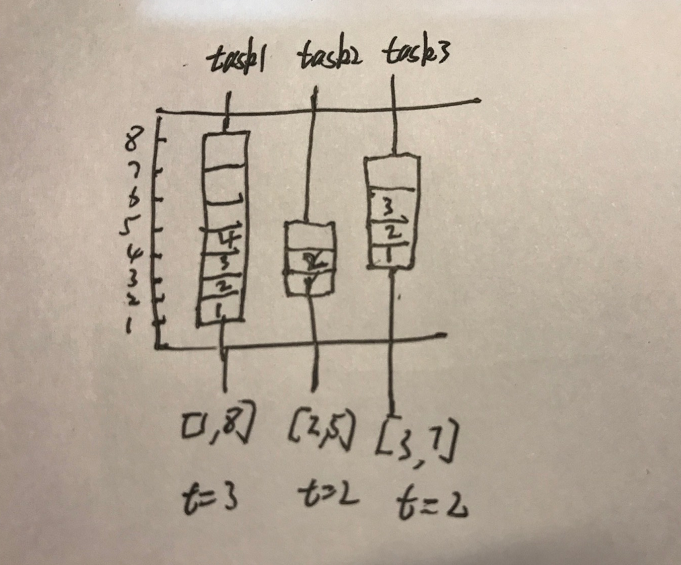 task1 task2 task3
8
7
6
5
4
3
2
1
4
3
2
1
2
1
3
2
1
[1,8] [2,5] [3,7]
t=3 t=2 t=2